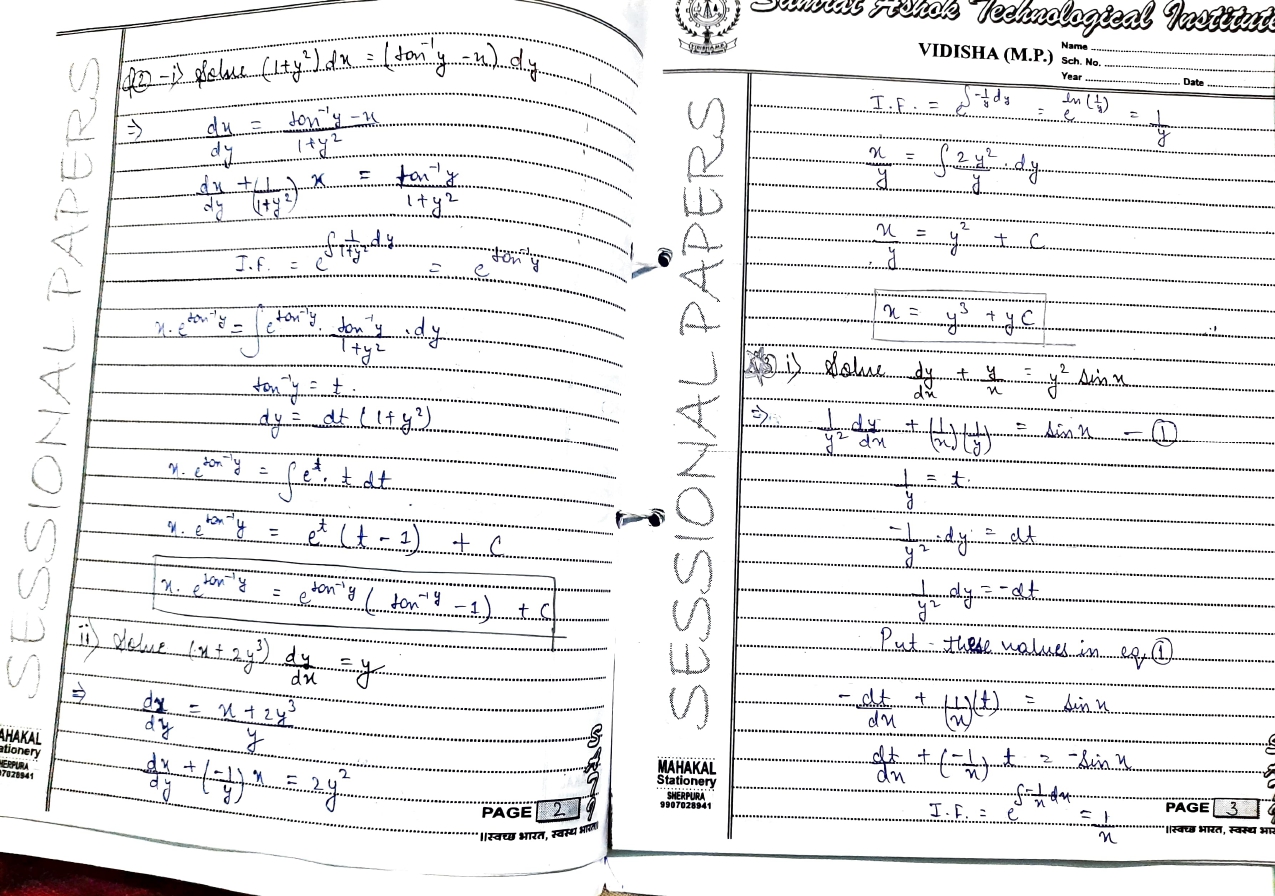 SESSIONAL PAPERS
Q② -i) Solve (1+y²) dx = (tan⁻¹y - x) dy
⇒ dx/dy = (tan⁻¹y - x)/(1+y²)
dx/dy + (1/(1+y²)) x = tan⁻¹y/(1+y²)
I.F. = e^(∫ 1/(1+y²) dy) = e^(tan⁻¹y)
x. e^(tan⁻¹y) = ∫ e^(tan⁻¹y) . tan⁻¹y/(1+y²) . dy
tan⁻¹y = t.
dy = dt (1+y²)
x. e^(tan⁻¹y) = ∫ e^t . t dt
x. e^(tan⁻¹y) = e^t (t - 1) + C
x. e^(tan⁻¹y) = e^(tan⁻¹y) (tan⁻¹y - 1) + C
ii) Solve (x + 2y³) dy/dx = y
⇒ dx/dy = (x + 2y³)/y
dx/dy + (-1/y) x = 2y²
AHAKAL
ationery
HERPURA
7028941
PAGE 2
॥स्वच्छ भारत, स्वस्थ भारत॥
Samrat Ashok Technological Institute
VIDISHA (M.P.)
Name
Sch. No.
Year Date
SESSIONAL PAPERS
I.F. = e^(∫ -1/y dy) = e^(ln (1/y)) = 1/y
x/y = ∫ 2y²/y . dy
x/y = y² + C
x = y³ + yC
i) Solve dy/dx + y/x = y² sin x
⇒ 1/y² dy/dx + (1/x)(1/y) = sin x - ①
1/y = t.
-1/y² . dy = dt
1/y² dy = -dt
Put these values in eq. ①
-dt/dx + (1/x)(t) = sin x
dt/dx + (-1/x) t = -sin x
I.F. = e^(∫ -1/x dx) = 1/x
MAHAKAL
Stationery
SHERPURA
9907028941
PAGE 3
॥स्वच्छ भारत, स्वस्थ भार